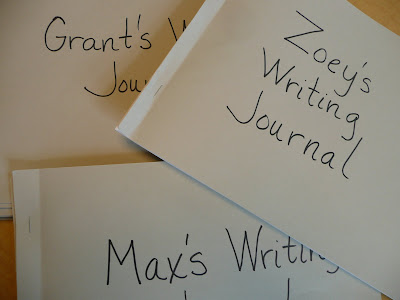 Grant's W
Jou
Zoey's
Writing
Journal
Max's Writing